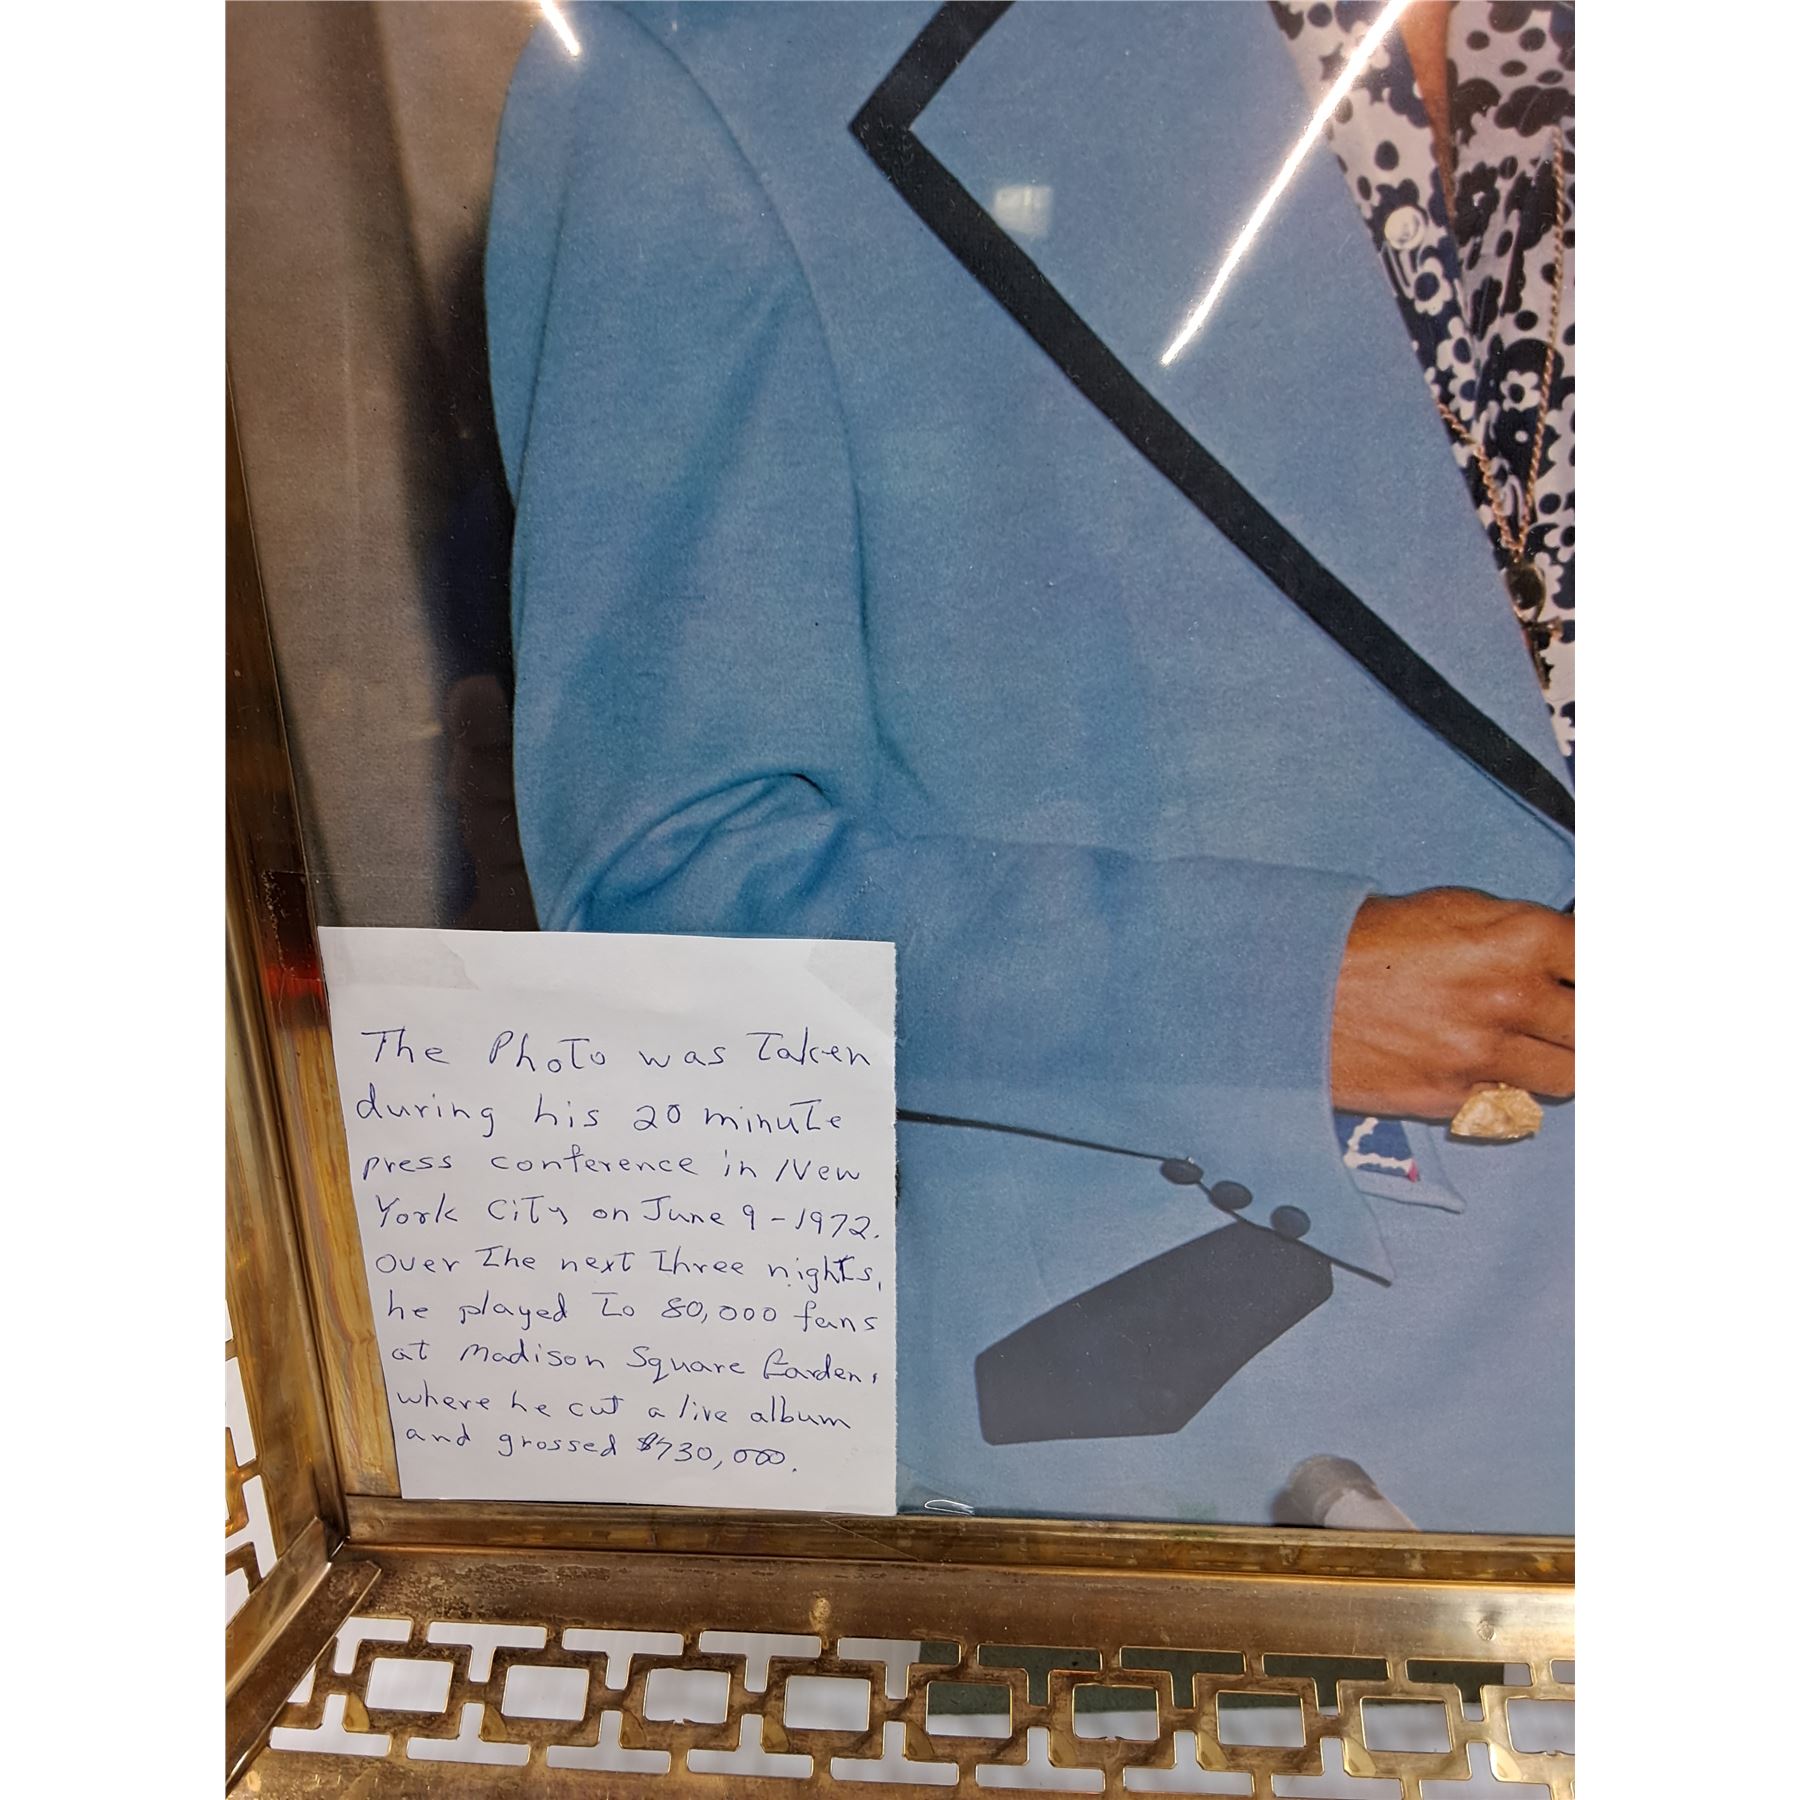 The Photo was Taken
during his 20 minute
press conference in New
York City on June 9-1972.
over the next three nights,
he played to 80,000 fans
at Madison Square Garden,
where he cut a live album
and grossed $730,000.